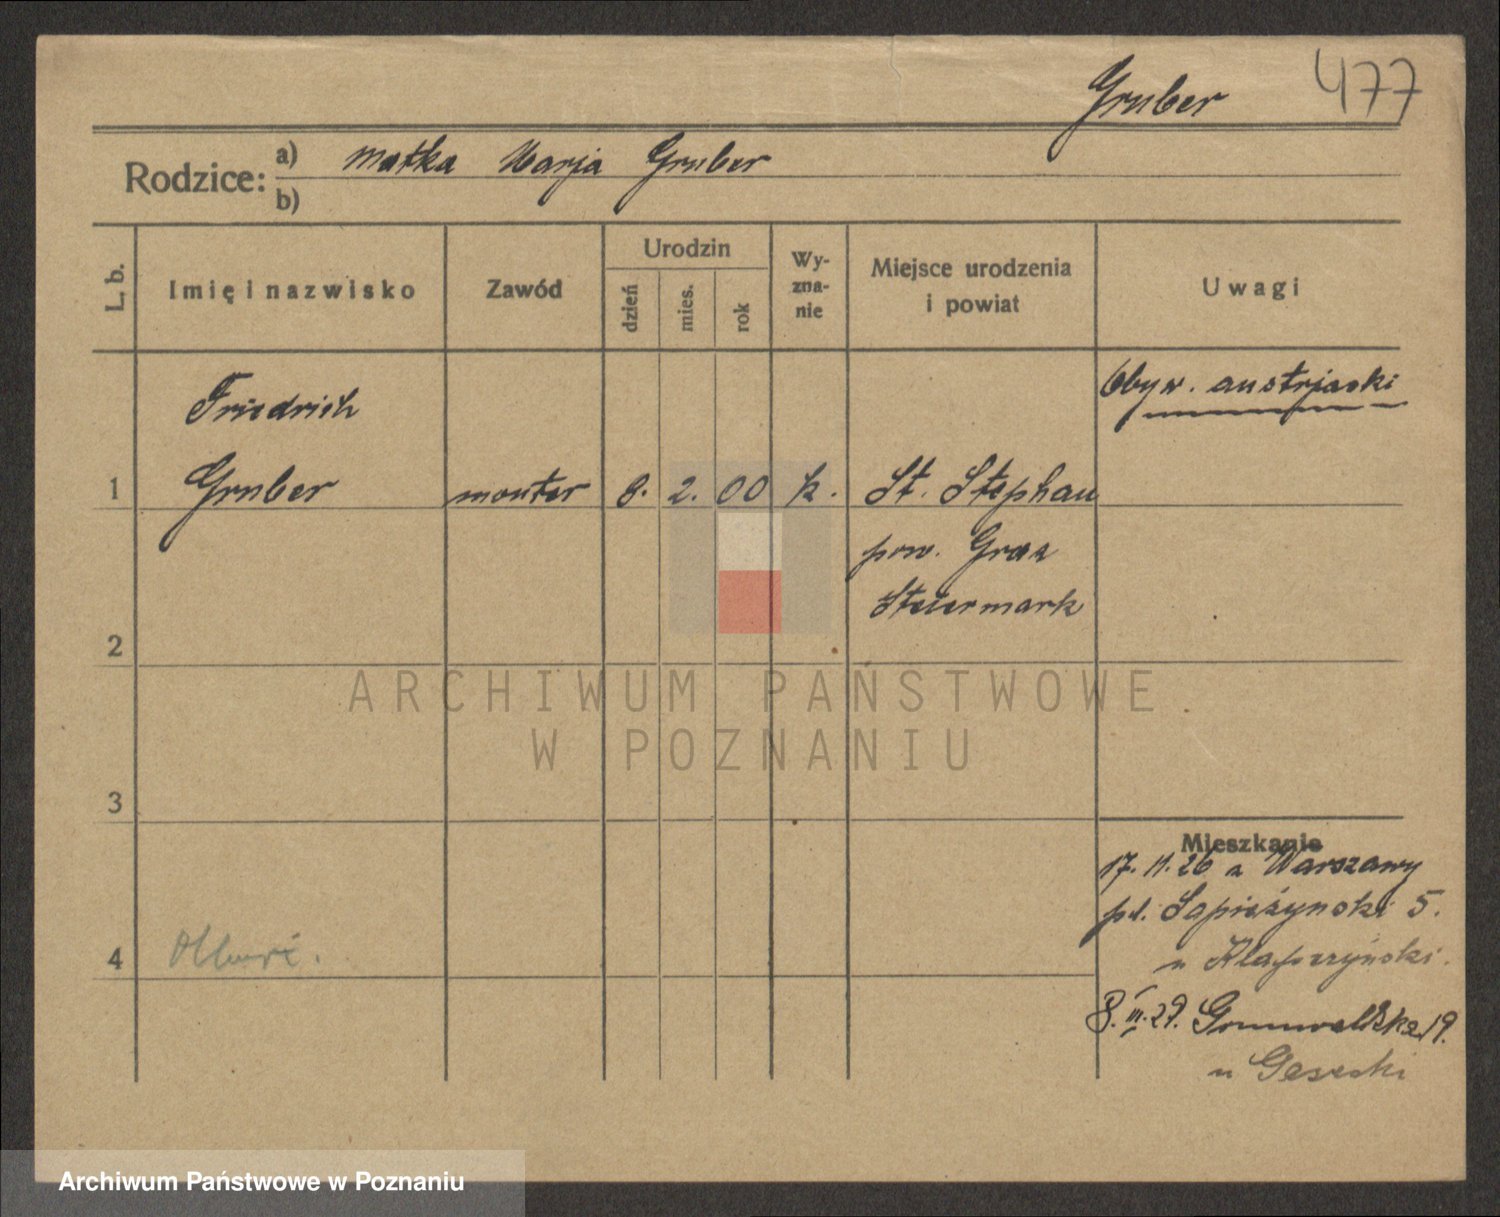 Gruber 477
Rodzice: a) matka Marja Gruber
b)
L. b. Imię i nazwisko Zawód Urodzin dzień mies. rok Wyznanie Miejsce urodzenia i powiat Uwagi
Friedrich
Obyw. austrjacki
1 Gruber monter 8. 2. 00 k. St. Stephan
pow. Graz
Steiermark
2
3
4
Mieszkanie
17. 11. 26 z Warszawy
pl. Sapieżyński 5.
u
8. III. 27. Grunwaldzka 19.
u
ARCHIWUM PAŃSTWOWE
W POZNANIU
Archiwum Państwowe w Poznaniu